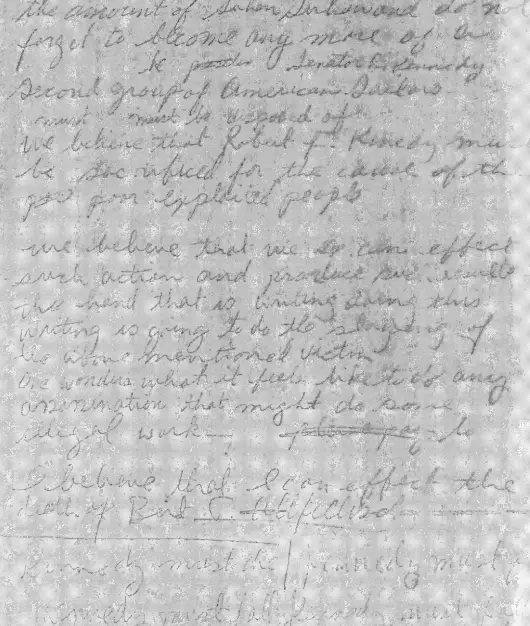 the amount of Sirhan Sirhan and do n
forget to become any more of a
be Senator R. Kennedy
Second group of American Sailors
must must be disposed of
We believe that Robert F. Kennedy mu
be sacrificed for the cause of th
poor exploited people
we believe that we can effect
such action and produce such results
the hand that is writing doing this
writing is going to do the slaying of
the above mentioned victim
One wonders what it feels like to do any
assassination that might do some
illegal work
I believe that I can effect the
death of Bert C.
Kennedy must Kennedy must
Kennedy must fall Kennedy must fall